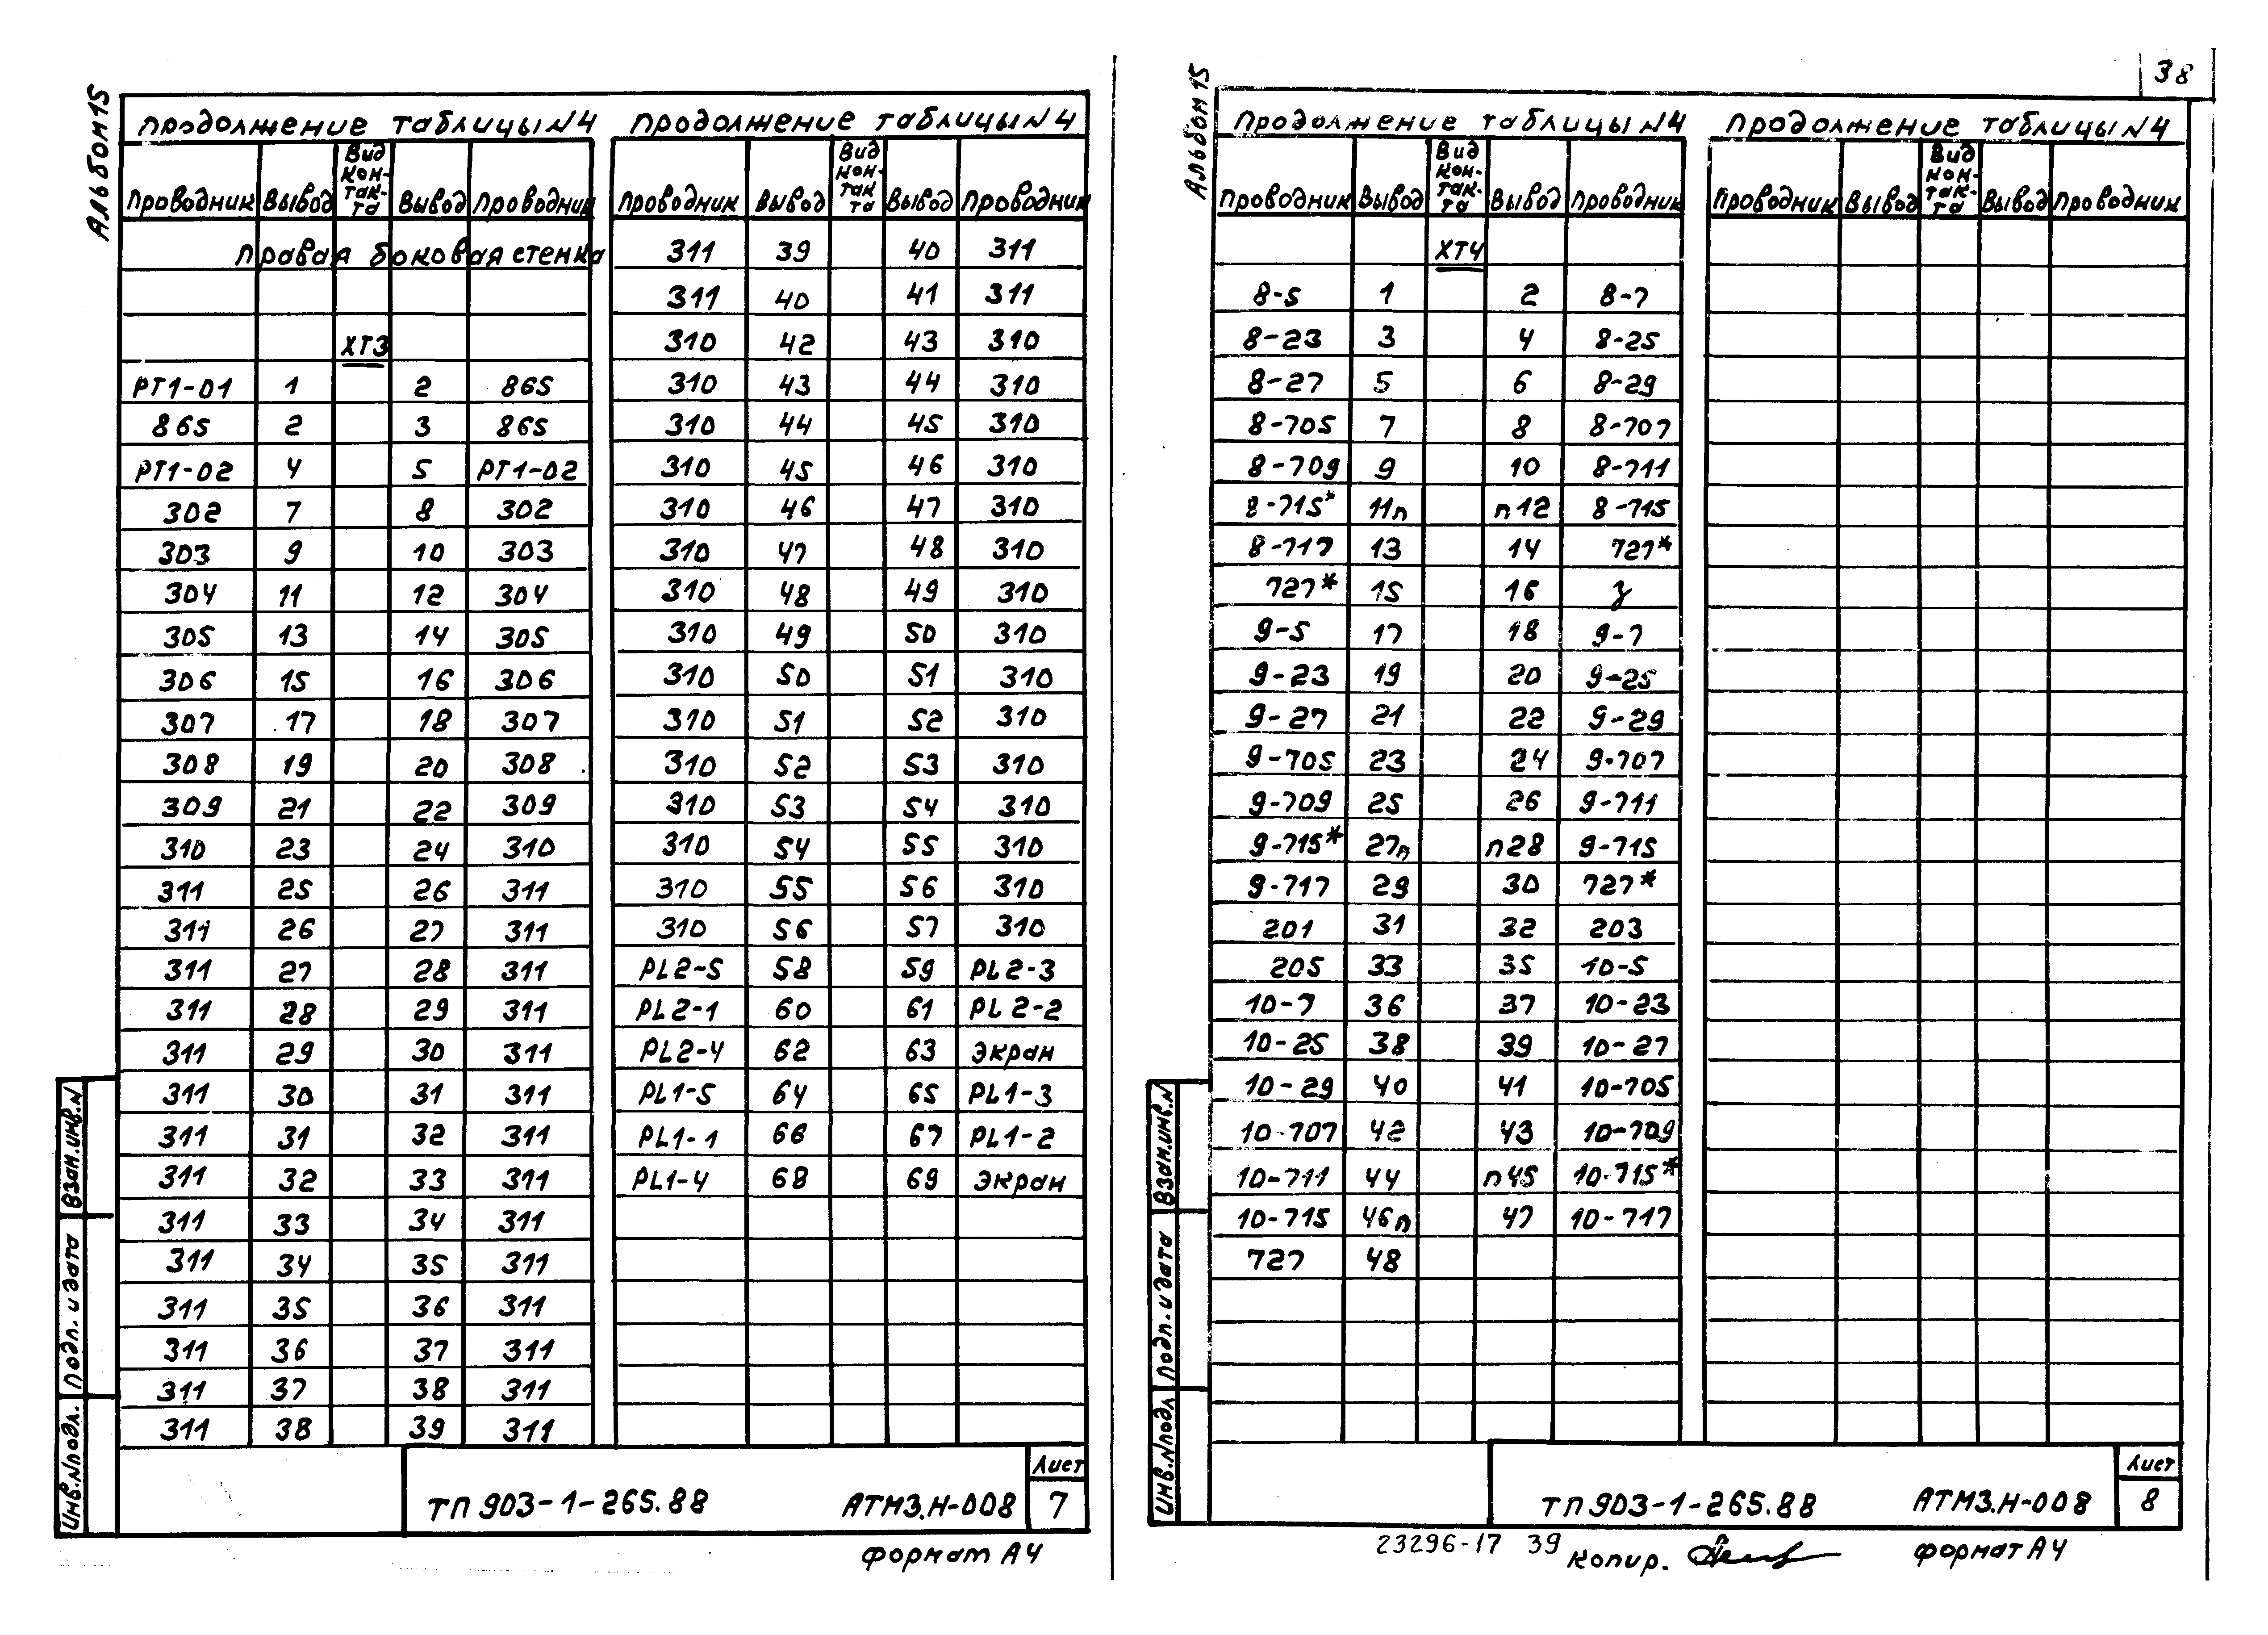 38
Альбом 15
Продолжение таблицы N4
Проводник Вывод Вид кон-так-та Вывод Проводник
Правая боковая стенка
ХТ3
РТ1-01 1 2 865
865 2 3 865
РТ1-02 4 5 РТ1-02
302 7 8 302
303 9 10 303
304 11 12 304
305 13 14 305
306 15 16 306
307 17 18 307
308 19 20 308
309 21 22 309
310 23 24 310
311 25 26 311
311 26 27 311
311 27 28 311
311 28 29 311
311 29 30 311
311 30 31 311
311 31 32 311
311 32 33 311
311 33 34 311
311 34 35 311
311 35 36 311
311 36 37 311
311 37 38 311
311 38 39 311
Продолжение таблицы N4
Проводник Вывод Вид кон-так-та Вывод Проводник
311 39 40 311
311 40 41 311
310 42 43 310
310 43 44 310
310 44 45 310
310 45 46 310
310 46 47 310
310 47 48 310
310 48 49 310
310 49 50 310
310 50 51 310
310 51 52 310
310 52 53 310
310 53 54 310
310 54 55 310
310 55 56 310
310 56 57 310
PL2-5 58 59 PL2-3
PL2-1 60 61 PL2-2
PL2-4 62 63 Экран
PL1-5 64 65 PL1-3
PL1-1 66 67 PL1-2
PL1-4 68 69 Экран
Взам.инв.N
Подп. и дата
Инв.Nподл.
ТП 903-1-265.88 АТМ3.Н-008
Лист
7
Формат А4
Альбом 15
Продолжение таблицы N4
Проводник Вывод Вид кон-так-та Вывод Проводник
ХТ4
8-5 1 2 8-7
8-23 3 4 8-25
8-27 5 6 8-29
8-705 7 8 8-707
8-709 9 10 8-711
8-715* 11п п12 8-715
8-717 13 14 727*
727* 15 16
9-5 17 18 9-7
9-23 19 20 9-25
9-27 21 22 9-29
9-705 23 24 9-707
9-709 25 26 9-711
9-715* 27п п28 9-715
9-717 29 30 727*
201 31 32 203
205 33 35 10-5
10-7 36 37 10-23
10-25 38 39 10-27
10-29 40 41 10-705
10-707 42 43 10-709
10-711 44 п45 10-715*
10-715 46п 47 10-717
727 48
Продолжение таблицы N4
Проводник Вывод Вид кон-так-та Вывод Проводник
Взам.инв.N
Подп. и дата
Инв.Nподл
ТП 903-1-265.88 АТМ3.Н-008
Лист
8
23296-17 39 Копир. Формат А4